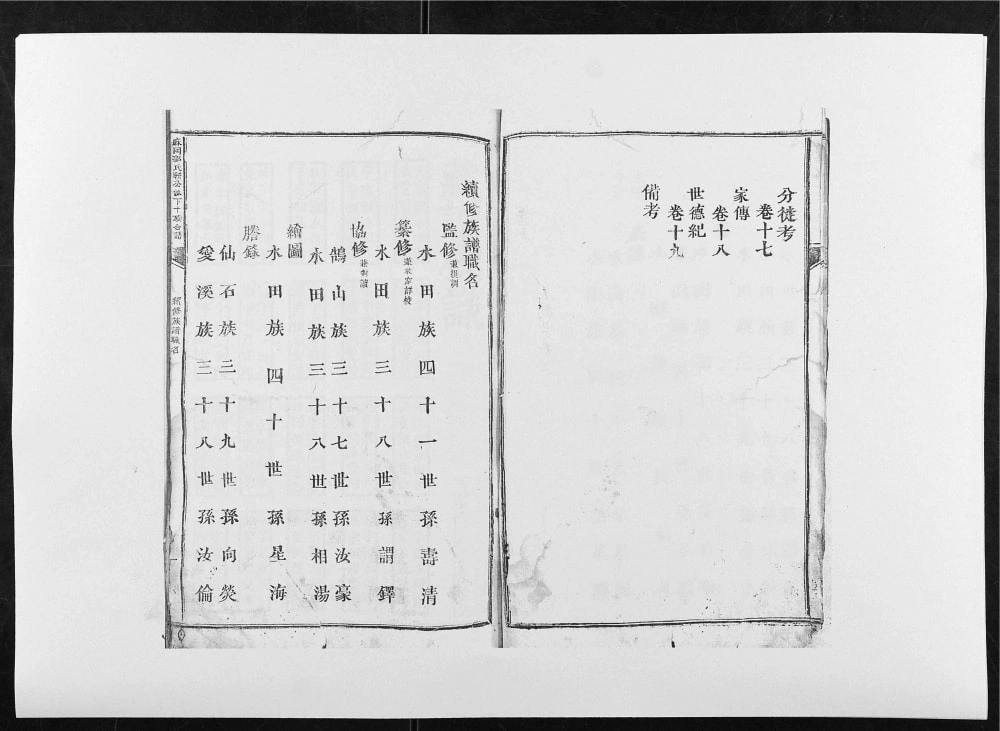 分徙考
卷十七
家傳
卷十八
世德紀
卷十九
備考
續修族譜職名
監修
水田族四十一世孫壽清
纂修
水田族三十八世孫謂鐸
協修
鵠山族三十七世孫汝豪
水田族三十八世孫相湯
繪圖
水田族四十世孫星海
謄錄
仙石族三十九世孫向熒
愛溪族三十八世孫汝倫
續修族譜職名